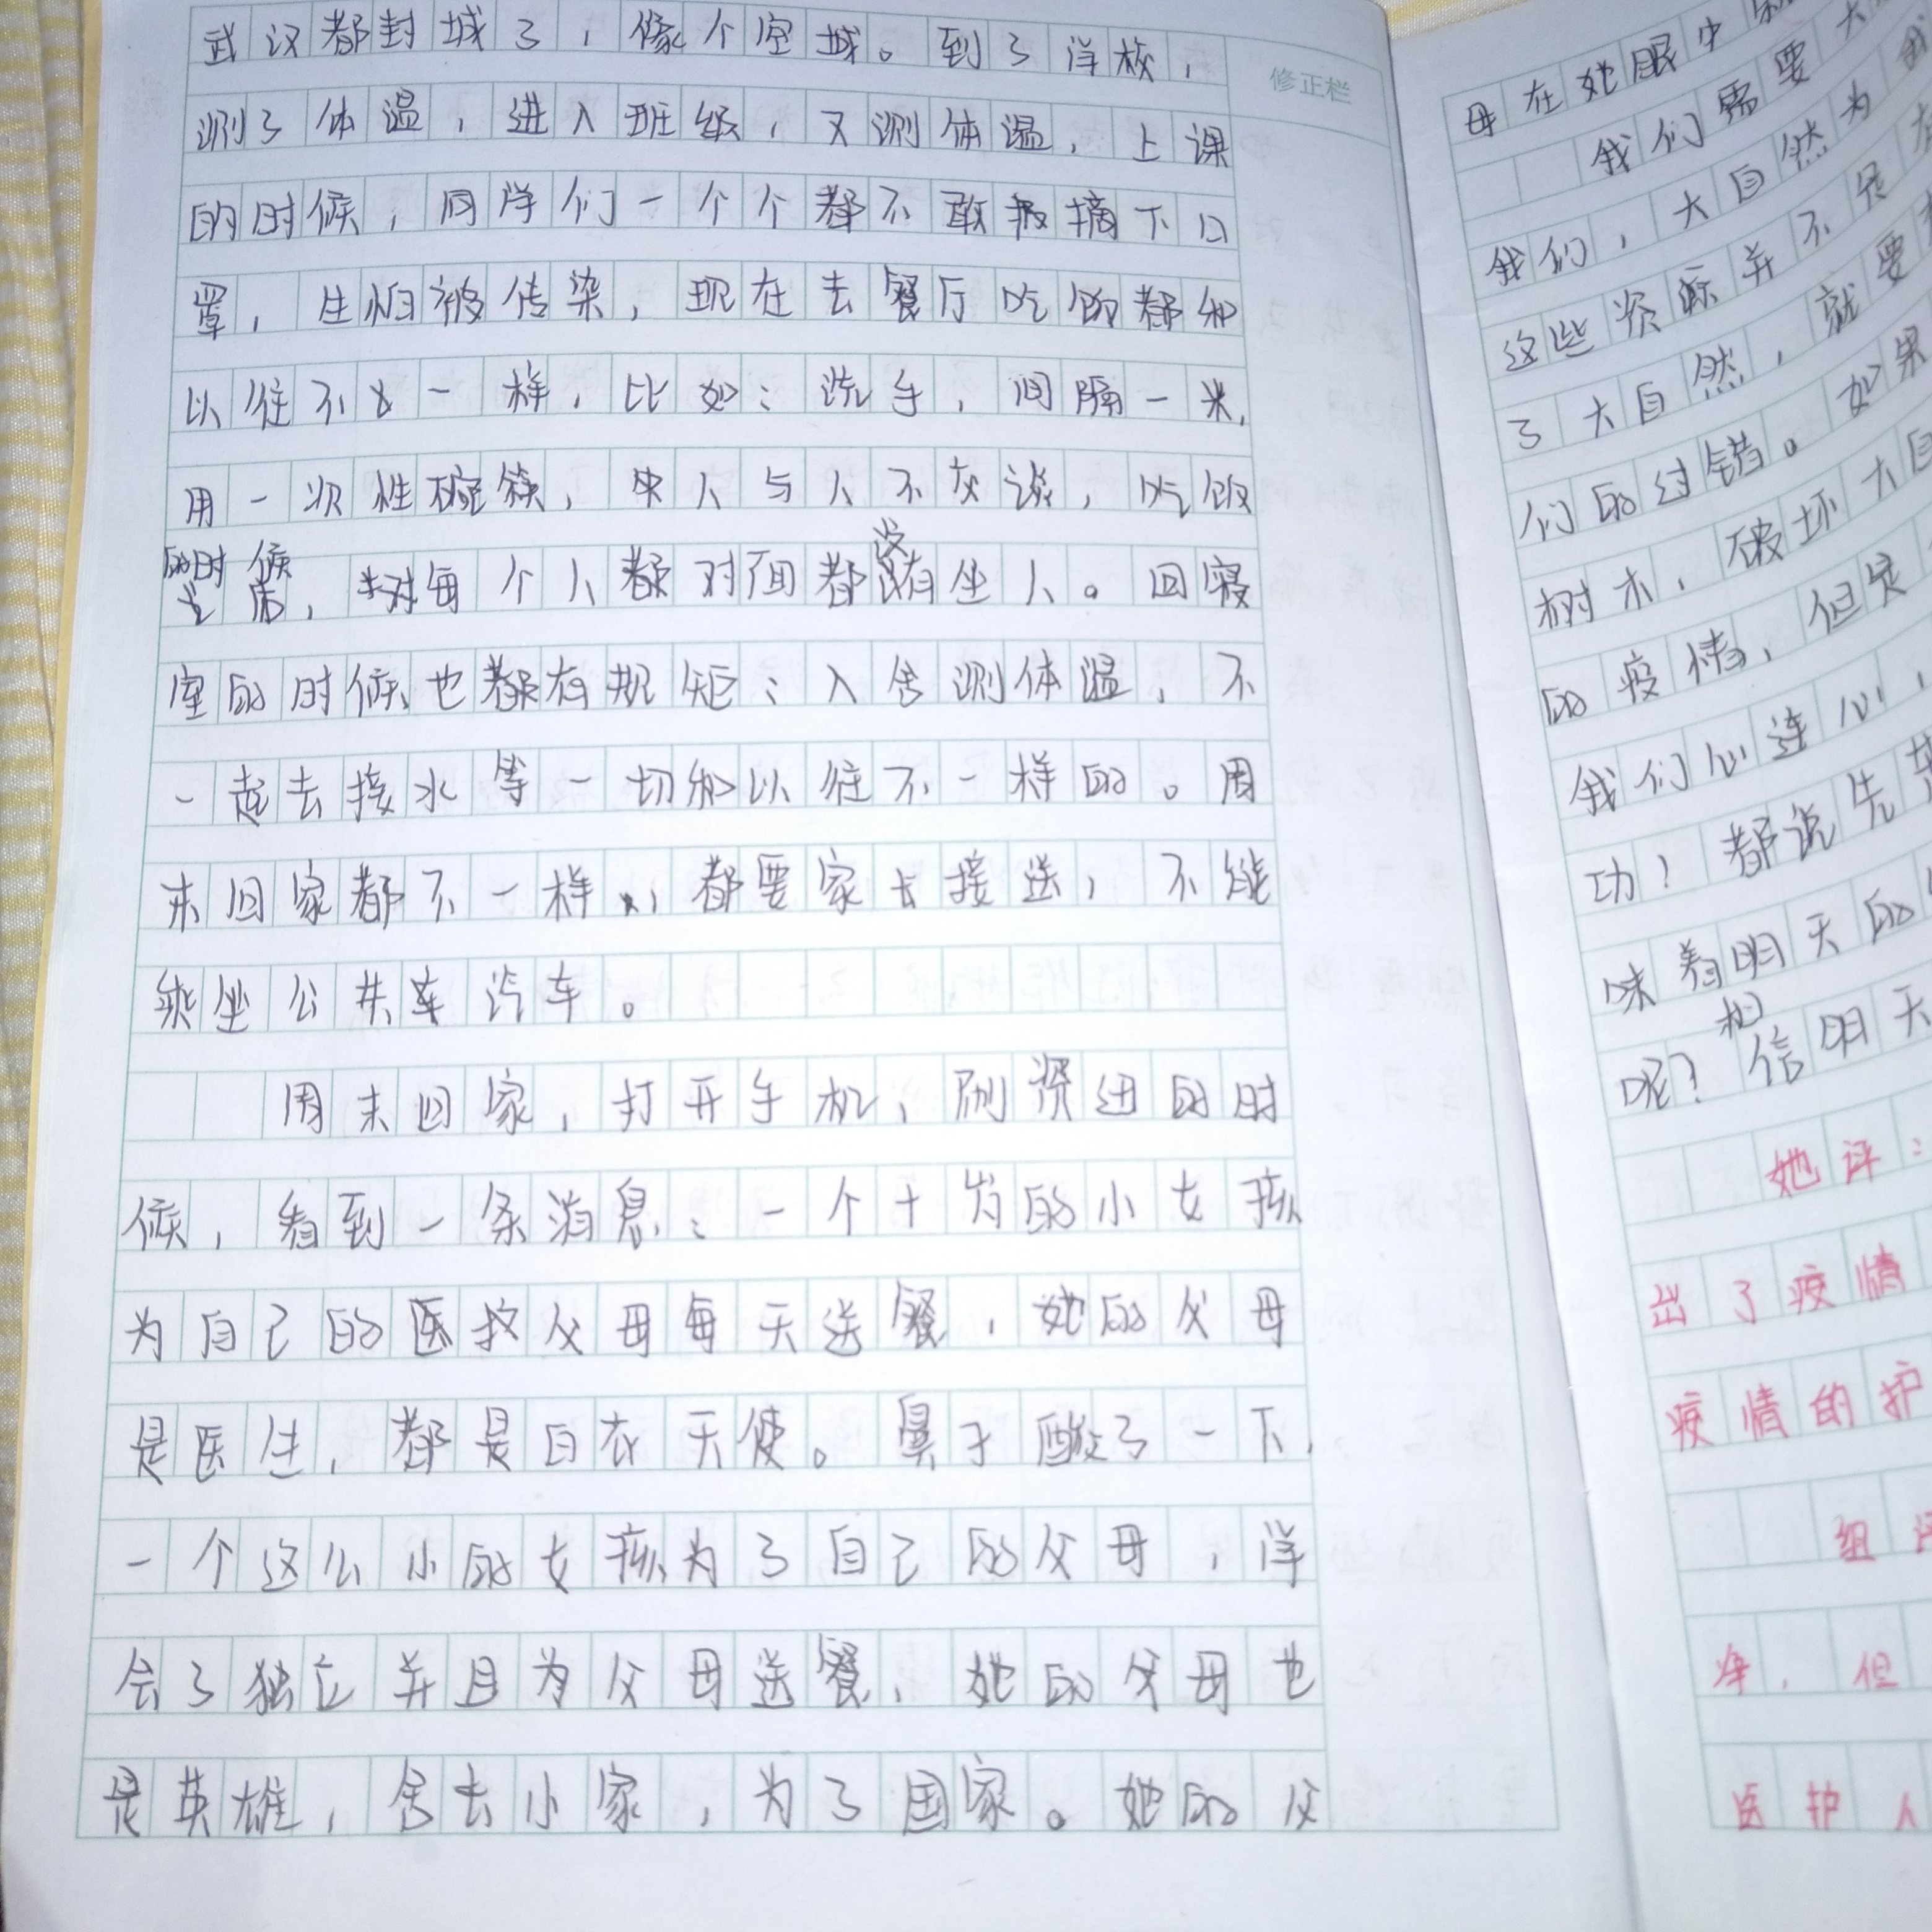 武汉都封城了，像个空城。到了学校，
修正栏
测了体温，进入班级，又测体温，上课
的时候，同学们一个个都不敢摘下口
罩，生怕被传染，现在去餐厅吃饭都和
以往不一样，比如：洗手，间隔一米，
用一次性碗筷，人与人不交谈，吃饭
的时候，每个人对面都没有坐人。回寝
室的时候也都有规矩：入舍测体温，不
一起去接水等一切和以往不一样的。周
末回家都不一样，都要家长接送，不能
乘坐公共汽车。
周末回家，打开手机，刷资讯的时
候，看到一条消息：一个十岁的小女孩
为自己的医护父母每天送餐，她的父母
是医生，都是白衣天使。鼻子酸了一下，
一个这么小的女孩为了自己的父母，学
会了独立并且为父母送餐，她的父母也
是英雄，舍去小家，为了国家。她的父
母在她眼中
我们需要大
我们，大自然为
这些资源并不是
了大自然，就要
们的过错。如果
树木，破坏大自
的疫情，但是
我们心连心，
功！都说先
味着明天的
呢？相信明天
她评：
出了疫情
疫情的护
组
净，但
医护人